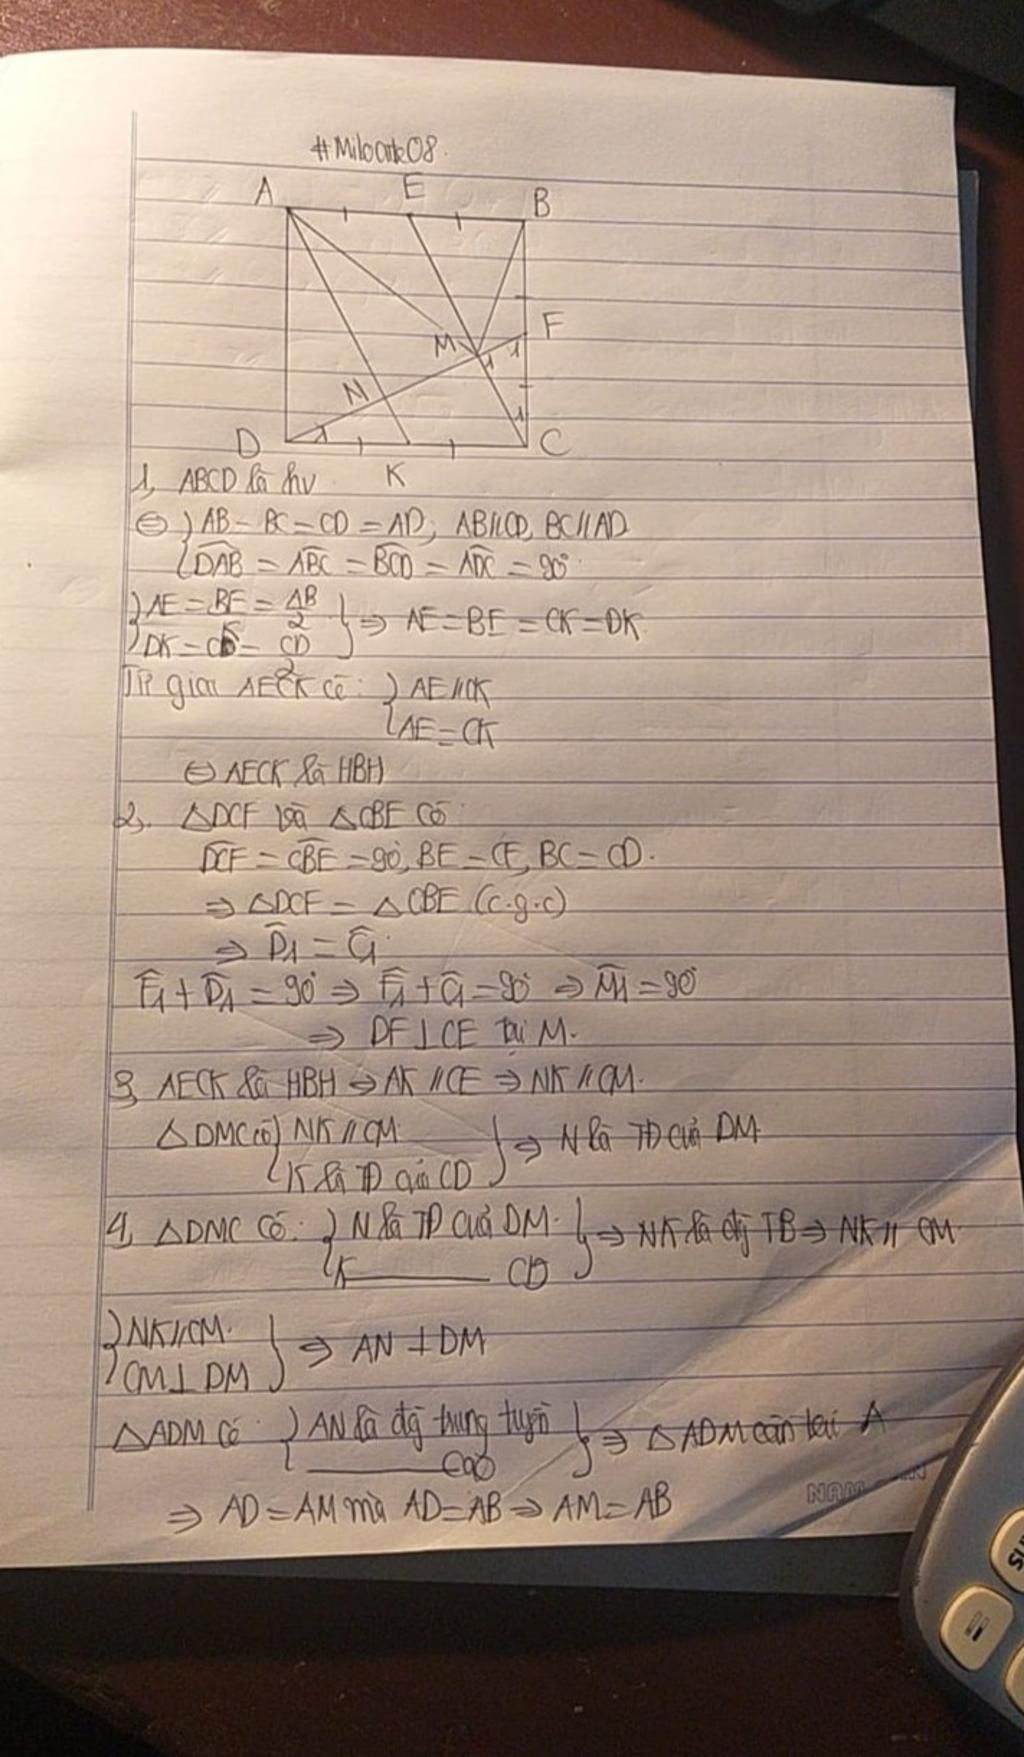 #Miloank08.
A E B
M F
N
D K C
1, ABCD là hv
⇔ { AB = BC = CD = AD, AB//CD, BC//AD
{ DAB = ABC = BCD = ADC = 90°
{ AE = BE = AB/2 } ⇒ AE = BE = CK = DK
{ DK = CK = CD/2 }
Tứ giác AECK có: { AE//CK
{ AE = CK
⇔ AECK là HBH
2, △DCF và △CBE có
DCF = CBE = 90°, BE = CF, BC = CD.
⇒ △DCF = △CBE (c.g.c)
⇒ D̂1 = Ĉ1
F̂1 + D̂1 = 90° ⇒ F̂1 + Ĉ1 = 90° ⇒ M̂1 = 90°
⇒ DF ⊥ CE tại M.
3, AECK là HBH ⇒ AK // CE ⇒ NK // CM.
△DMC có { NK // CM } ⇒ N là TĐ của DM
{ K là TĐ của CD }
4, △DMC có: { N là TĐ của DM. } ⇒ NK là đg TB ⇒ NK // CM
{ K ________ CD }
{ NK//CM. } ⇒ AN ⊥ DM
{ CM ⊥ DM }
△ADM có { AN là đg trung tuyến } ⇒ △ADM cân tại A
{ ________ cao }
⇒ AD = AM mà AD = AB ⇒ AM = AB